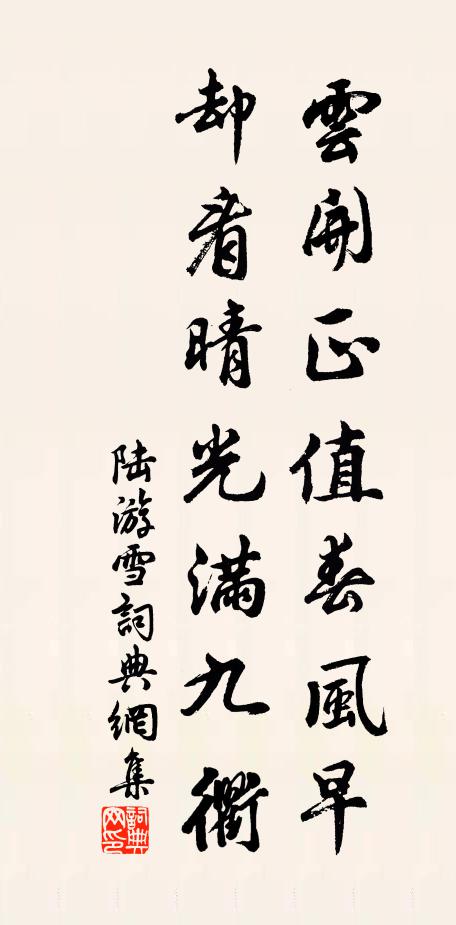 雲開正值春風早
却看晴光滿九衢
陆游雪詞典網集
詞典網印